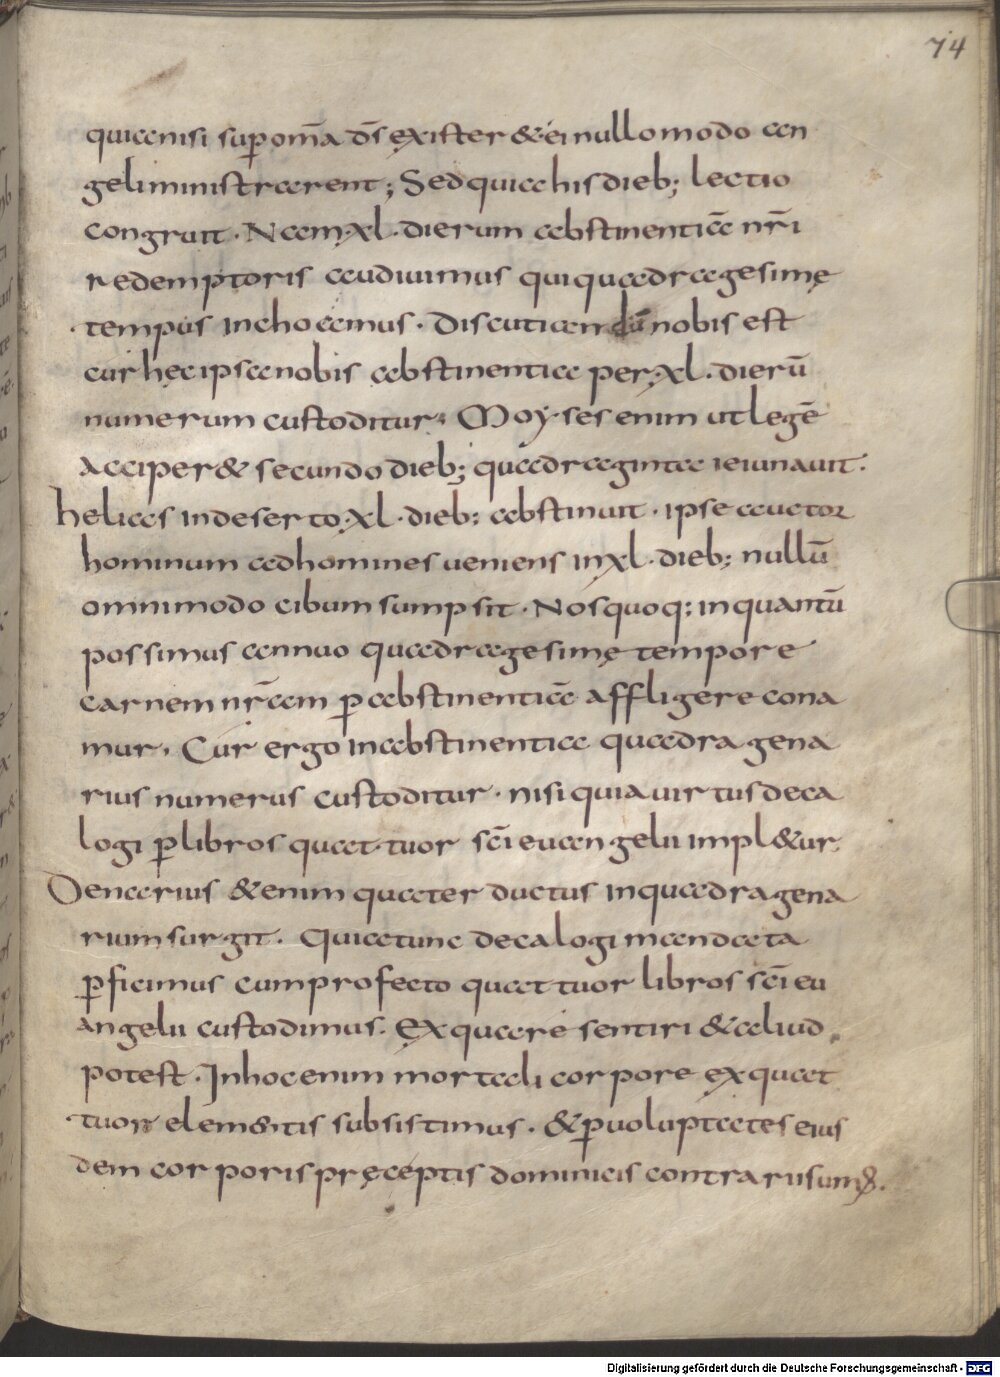 74
quia nisi sup̄ om̄a d̄s existeret ei nullo modo an
geli ministrarent; Sed quia his dieb; lectio
congruit. Nam xl. dierum abstinentiā nr̄i
redemptoris audiuimus qui quadragesimę
tempus inchoamus. Discutiendū nobis est
cur hęc ipsa nobis abstinentia per xl. dierū
numerum custoditur; Moyses enim ut legē
acciper& secundo dieb; quadraginta ieiunauit.
helias in deserto xl. dieb; abstinuit. ipse auctor
hominum ad homines ueniens in xl. dieb; nullū
omnimodo cibum sumpsit. Nos quoq; inquantū
possimus annuo quadragesimę tempore
carnem nr̄am p̄ abstinentiā affligere cona
mur. Cur ergo in abstinentia quadragena
rius numerus custoditur. nisi quia uirtus deca
logi p̄ libros quattuor sc̄i euangelii impl&ur.
Denarius &enim quater ductus in quadragena
rium surgit. Quia tunc decalogi mandata
p̄ficimus cum profecto quattuor libros sc̄i eu
angelii custodimus. Ex qua re sentiri & aliud
potest. In hoc enim mortali corpore ex quat
tuor elem&ntis subsistimus. & p̄ uoluptates eius
dem corporis pręceptis dominicis contrarii sum;.
Digitalisierung gefördert durch die Deutsche Forschungsgemeinschaft - DFG